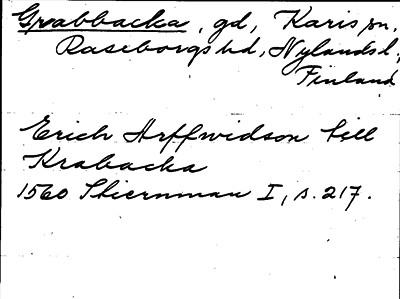 Grabbacka, gd, Karis sn,
Raseborgs hd, Nylands l.,
Finland
Erich Arffwidson till
Krabacka
1560 Stiernman I, s. 217.